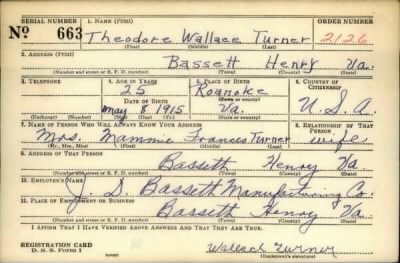 SERIAL NUMBER 1. NAME (Print) ORDER NUMBER
No 663 Theodore Wallace Turner 2126
(First) (Middle) (Last)
2. ADDRESS (Print)
Bassett Henry Va.
(Number and street or R. F. D. number) (Town) (County) (State)
3. TELEPHONE 4. AGE IN YEARS 5. PLACE OF BIRTH 6. COUNTRY OF CITIZENSHIP
25 Roanoke
DATE OF BIRTH (Town or county)
May 8 1915 Va. U.S.A.
(Exchange) (Number) (Mo.) (Day) (Yr.) (State or country)
7. NAME OF PERSON WHO WILL ALWAYS KNOW YOUR ADDRESS 8. RELATIONSHIP OF THAT PERSON
Mrs. Mammie Frances Turner wife
(Mr., Mrs., Miss) (First) (Middle) (Last)
9. ADDRESS OF THAT PERSON
Bassett Henry Va
(Number and street or R. F. D. number) (Town) (County) (State)
10. EMPLOYER'S NAME
J. D. Bassett Manufacturing Co.
11. PLACE OF EMPLOYMENT OR BUSINESS
Bassett Henry Va
(Number and street or R. F. D. number) (Town) (County) (State)
I AFFIRM THAT I HAVE VERIFIED ABOVE ANSWERS AND THAT THEY ARE TRUE.
REGISTRATION CARD
D. S. S. Form 1 (over) Wallace Turner
(Registrant's signature)